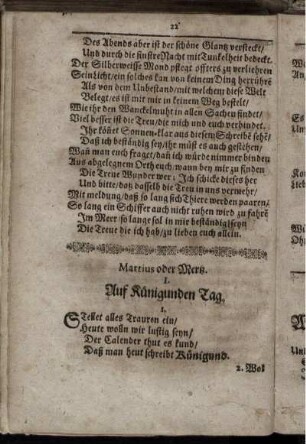 22
Des Abends aber ist der schöne Glantz versteckt/
Und durch die finstre Nacht mit Tunkelheit bedeckt.
Der Silberweisse Mond pflegt offters zu verliehren
Sein licht/ ein solches kan von keinem Ding herrühre
Als von dem Unbestand/ mit welchem diese Welt
Belegt/ es ist mit mir in keinem Weg bestelt/
Wie ihr den Wanckelmuht in allen Sachen findet/
Viel besser ist die Treu/ die mich und euch verbindet.
Ihr könet Sonnen-klar aus diesem Schreibē sehē/
Daß ich beständig sey/ ihr müst es auch gestehen/
Wañ man euch fraget/ daß ich würde nimmer binden
Aus abgelegnem Orth euch/ wann bey mir zu finden
Die Treue Wunder wer; Ich schicke dieses her
Und bitte/ daß dasselb die Treu in uns vermehr/
Mit meldung/ daß so lang sich Thiere werden paaren/
So lang ein Schiffer auch nicht ruhen wird zu fahrē
Im Meer/ so lange sol in mir beständig seyn
Die Treue die ich hab/ zu lieben euch allein.
Martius oder Mertz.
I.
Auf Künigunden Tag.
1.
Stellet alles Trauren ein/
Heute wolln wir lustig seyn/
Der Calender thut es kund/
Daß man heut schreibt Künigund.
2. Wol